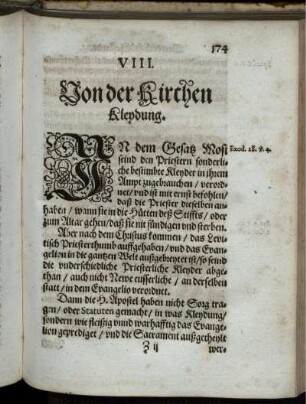 174
VIII.
Von der Kirchen
Kleydung.
IN dem Gesatz Mosi
seind den Priestern sonderli-
che bestimbte Kleyder in jhrem
Ampt zugebrauchen / verord-
net / vnd ist mit ernst befohlen /
daß die Priester dieselben an-
haben / wann sie in die Hütten deß Stiffts / oder
zum Altar gehen / daß sie nit sündigen vnd sterben.
Exod. 28. v. 4.
Aber nach dem Christus kommen / das Levi-
tisch Priesterthumb auffgehaben / vnd das Evan-
gelion in die gantzen Welt außgebreytet ist / so seind
die vnderschiedliche Priesterliche Kleyder abge-
than / auch nicht Newe eusserliche / an derselben
statt / in dem Evangelio verordnet.
Dann die H. Apostel haben nicht Sorg tra-
gen / oder Statuten gemacht / in was Kleydung /
sondern wie fleißig vnnd warhafftig das Evange-
lion geprediget / vnd die Sacrament außgetheylt
Z ij
wer-